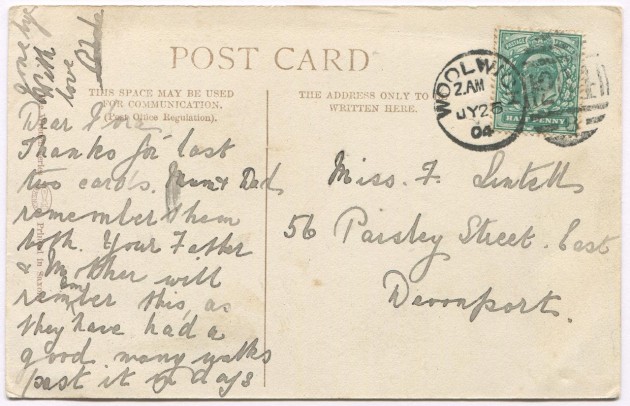 POST CARD
THIS SPACE MAY BE USED
FOR COMMUNICATION,
(Post Office Regulation).
THE ADDRESS ONLY TO
WRITTEN HERE.
Dear
Thanks for last
two cards. Mum & Dad
remember them
both. Your Father
& Mother will
remember this, as
they have had a
good many walks
past it in days
gone by
With
love
Miss. F.
56 Paisley Street. East
Devonport.
WOOLW
2. AM
JY 2
04
HALF PENNY